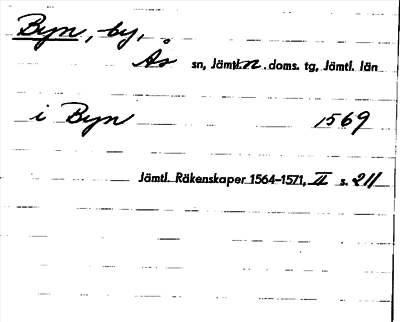 Byn, by,
Ås sn, Jämtl. n. doms. tg, Jämtl. län
i Byn 1569
Jämtl. Räkenskaper 1564-1571, II s. 211